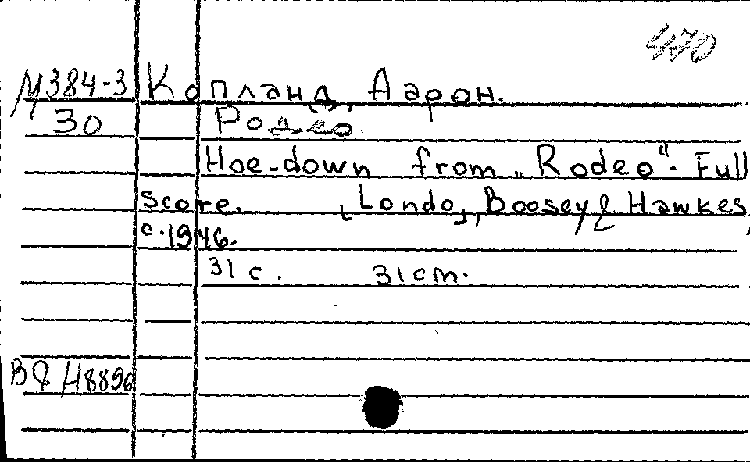 470
М384-3 Копланд, Аарон.
30 Родео
Hoe-down from „Rodeo". Full
score. [Londo], Boosey & Hawkes,
c.1946.
31 с. 31cm.
B & H8896